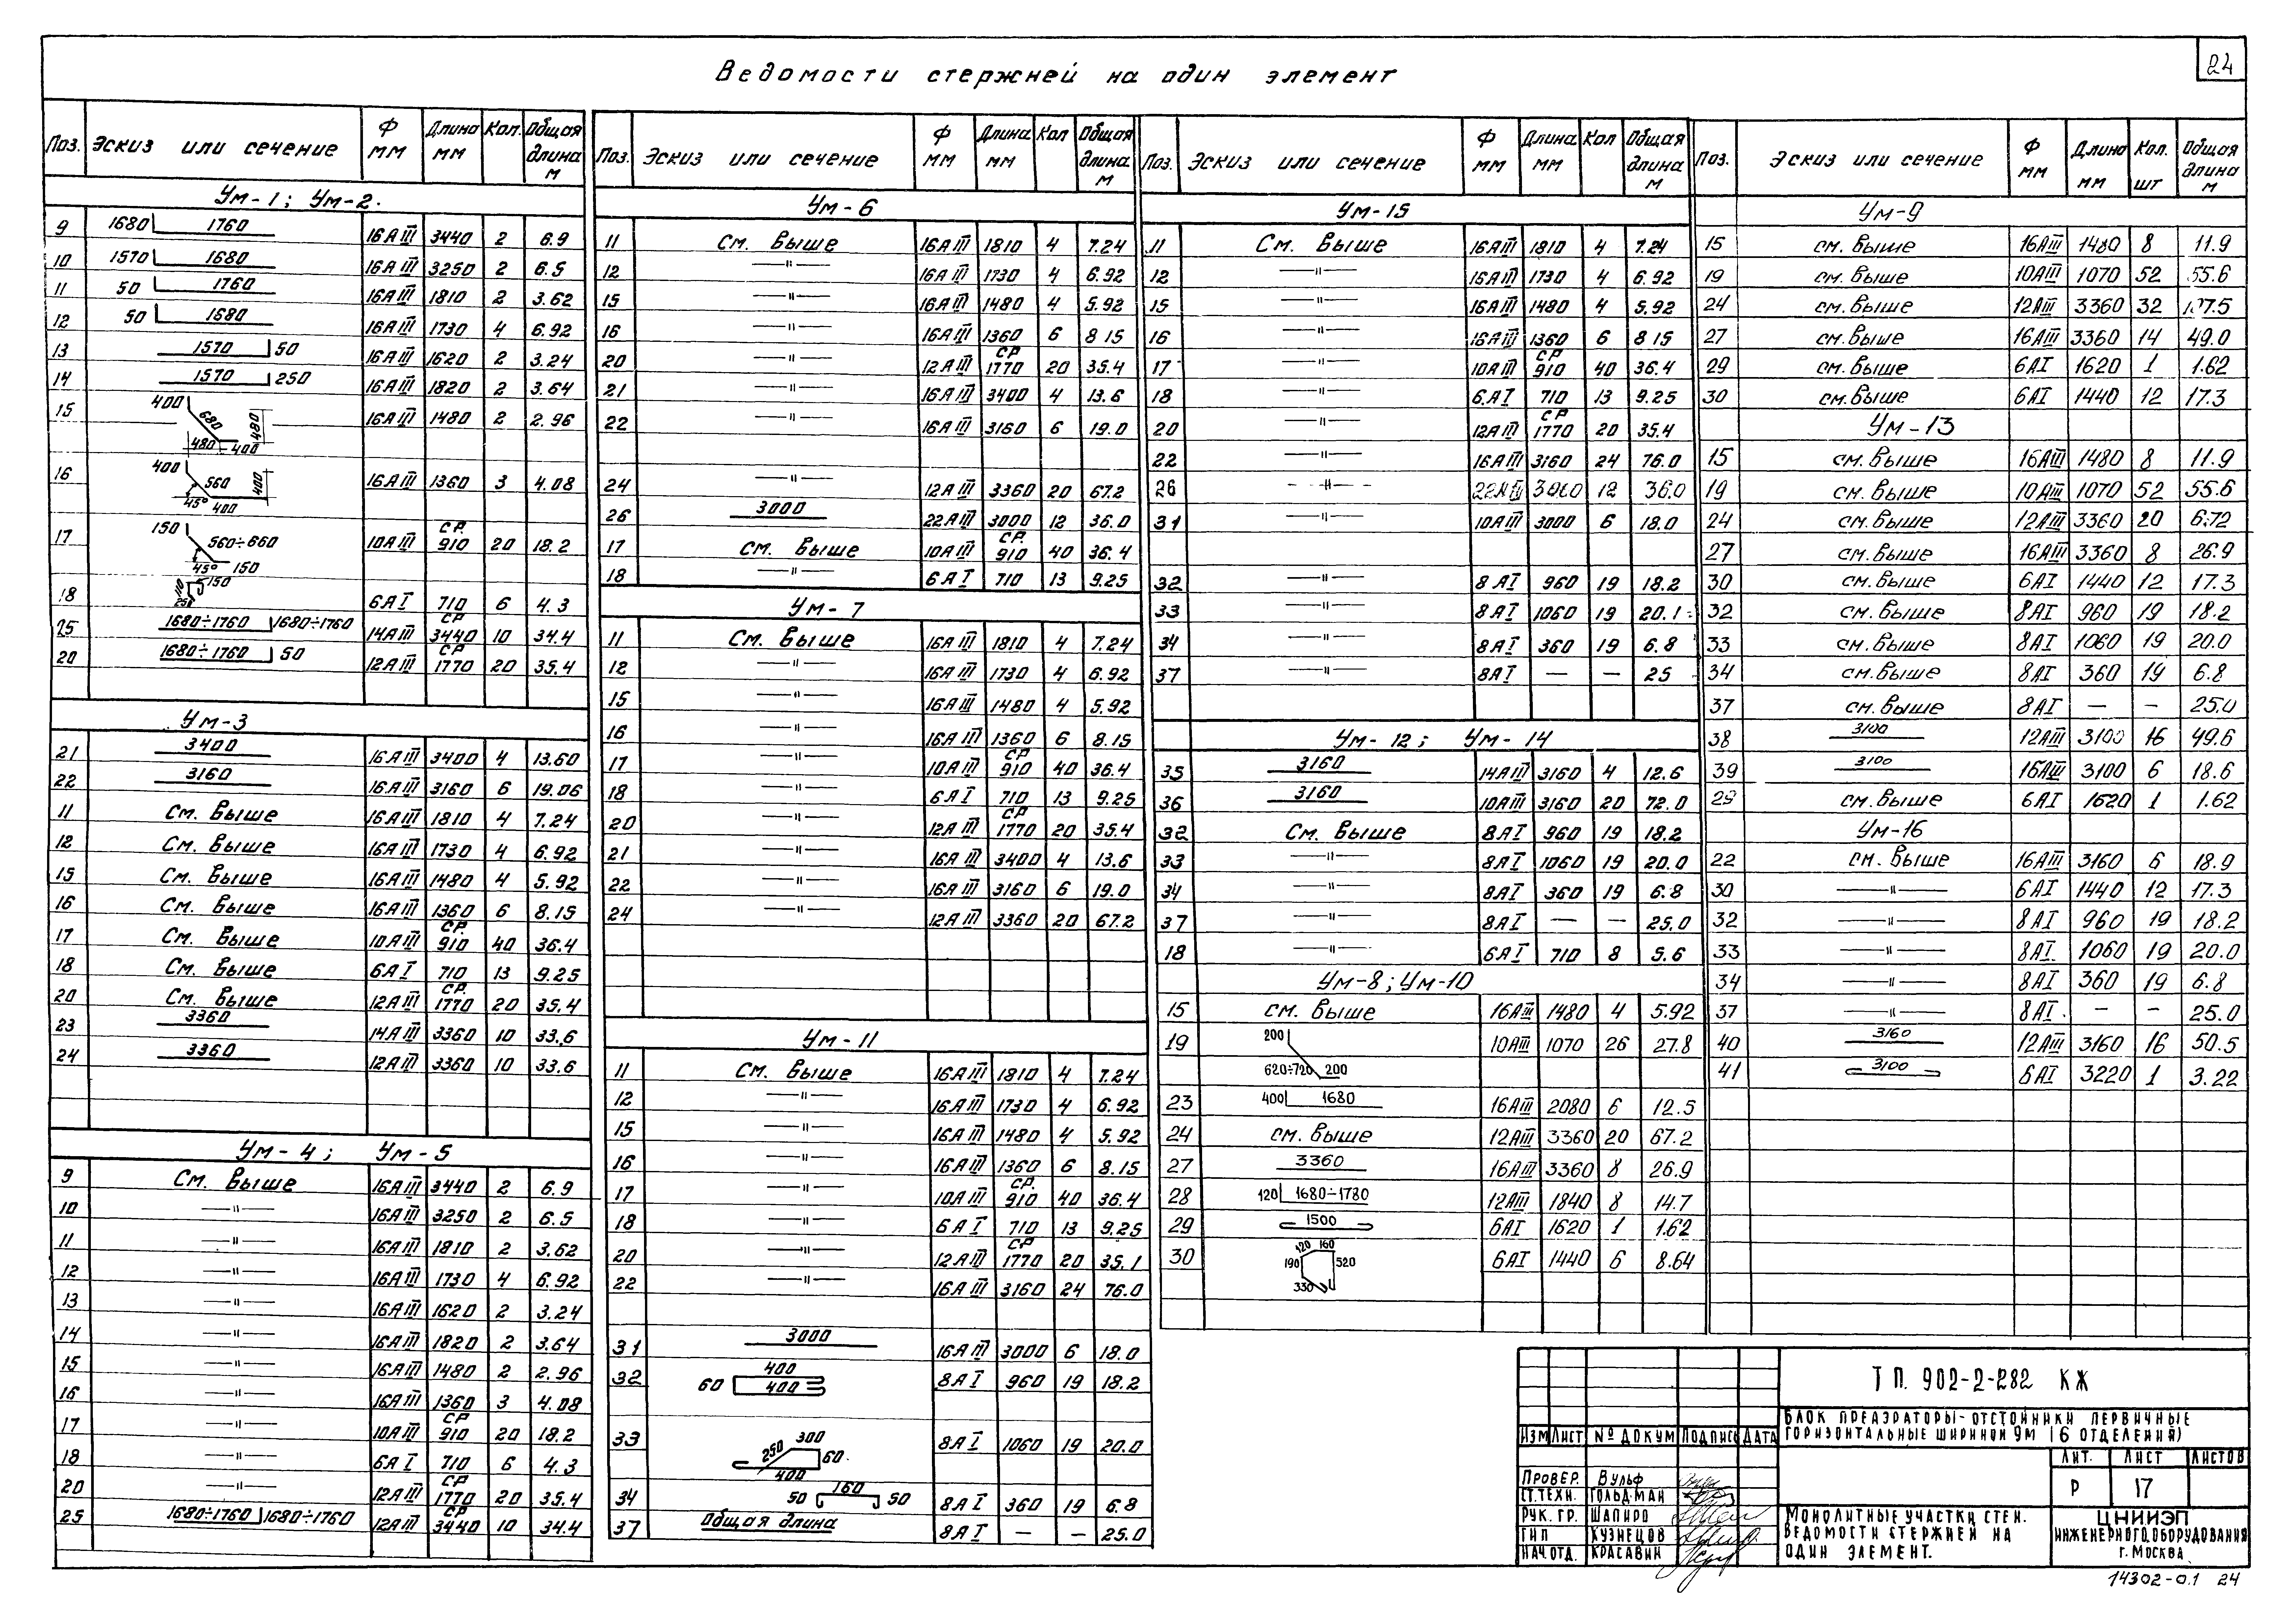 24
Ведомости стержней на один элемент
Поз. Эскиз или сечение Ф мм Длина мм Кол. Общая длина м
Ум-1; Ум-2.
9 1680 1760 16АIII 3440 2 6.9
10 1570 1680 16АIII 3250 2 6.5
11 50 1760 16АIII 1810 2 3.62
12 50 1680 16АIII 1730 4 6.92
13 1570 50 16АIII 1620 2 3.24
14 1570 250 16АIII 1820 2 3.64
15 400 680 480 480 400 16АIII 1480 2 2.96
16 400 560 400 45° 400 16АIII 1360 3 4.08
17 150 560÷660 45° 150 10АIII ср. 910 20 18.2
18 150 6АI 710 6 4.3
25 1680÷1760 1680÷1760 14АIII ср 3440 10 34.4
20 1680÷1760 50 12АIII ср 1770 20 35.4
Ум-3
21 3400 16АIII 3400 4 13.60
22 3160 16АIII 3160 6 19.06
11 См. выше 16АIII 1810 4 7.24
12 См. выше 16АIII 1730 4 6.92
15 См. выше 16АIII 1480 4 5.92
16 См. выше 16АIII 1360 6 8.15
17 См. выше 10АIII ср. 910 40 36.4
18 См. выше 6АI 710 13 9.25
20 См. выше 12АIII ср. 1770 20 35.4
23 3360 14АIII 3360 10 33.6
24 3360 12АIII 3360 10 33.6
Ум-4; Ум-5
9 См. выше 16АIII 3440 2 6.9
10 —"— 16АIII 3250 2 6.5
11 —"— 16АIII 1810 2 3.62
12 —"— 16АIII 1730 4 6.92
13 —"— 16АIII 1620 2 3.24
14 —"— 16АIII 1820 2 3.64
15 —"— 16АIII 1480 2 2.96
16 —"— 16АIII 1360 3 4.08
17 —"— 10АIII ср 910 20 18.2
18 —"— 6АI 710 6 4.3
20 —"— 12АIII ср 1770 20 35.4
25 1680÷1760 1680÷1760 12АIII ср 3440 10 34.4
Поз. Эскиз или сечение Ф мм Длина мм Кол Общая длина м
Ум-6
11 См. выше 16АIII 1810 4 7.24
12 —"— 16АIII 1730 4 6.92
15 —"— 16АIII 1480 4 5.92
16 —"— 16АIII 1360 6 8 15
20 —"— 12АIII ср 1770 20 35.4
21 —"— 16АIII 3400 4 13.6
22 —"— 16АIII 3160 6 19.0
24 —"— 12АIII 3360 20 67.2
26 3000 22АIII 3000 12 36.0
17 См. выше 10АIII ср. 910 40 36.4
18 —"— 6АI 710 13 9.25
Ум-7
11 См. выше 16АIII 1810 4 7.24
12 —"— 16АIII 1730 4 6.92
15 —"— 16АIII 1480 4 5.92
16 —"— 16АIII 1360 6 8.15
17 —"— 10АIII ср 910 40 36.4
18 —"— 6АI 710 13 9.25
20 —"— 12АIII ср 1770 20 35.4
21 —"— 16АIII 3400 4 13.6
22 —"— 16АIII 3160 6 19.0
24 —"— 12АIII 3360 20 67.2
Ум-11
11 См. выше 16АIII 1810 4 7.24
12 —"— 16АIII 1730 4 6.92
15 —"— 16АIII 1480 4 5.92
16 —"— 16АIII 1360 6 8.15
17 —"— 10АIII ср. 910 40 36.4
18 —"— 6АI 710 13 9.25
20 —"— 12АIII ср 1770 20 35.1
22 —"— 16АIII 3160 24 76.0
31 3000 16АIII 3000 6 18.0
32 60 400 400 8АI 960 19 18.2
33 250 300 60 400 8АI 1060 19 20.0
34 50 160 50 8АI 360 19 6.8
37 Общая длина 8АI — — 25.0
Поз. Эскиз или сечение Ф мм Длина мм Кол Общая длина м
Ум-15
11 См. выше 16АIII 1810 4 7.24
12 —"— 16АIII 1730 4 6.92
15 —"— 16АIII 1480 4 5.92
16 —"— 16АIII 1360 6 8 15
17 —"— 10АIII ср 910 40 36.4
18 —"— 6АI 710 13 9.25
20 —"— 12АIII ср 1770 20 35.4
22 —"— 16АIII 3160 24 76.0
26 —"— 22АIII 3000 12 36.0
31 —"— 10АIII 3000 6 18.0
32 —"— 8АI 960 19 18.2
33 —"— 8АI 1060 19 20.1
34 —"— 8АI 360 19 6.8
37 —"— 8АI — — 25
Ум-12; Ум-14
35 3160 14АIII 3160 4 12.6
36 3160 10АIII 3160 20 72.0
32 См. выше 8АI 960 19 18.2
33 —"— 8АI 1060 19 20.0
34 —"— 8АI 360 19 6.8
37 —"— 8АI — — 25.0
18 —"— 6АI 710 8 5.6
Ум-8; Ум-10
15 см. выше 16АIII 1480 4 5.92
19 200 620÷720 200 10АIII 1070 26 27.8
23 400 1680 16АIII 2080 6 12.5
24 см. выше 12АIII 3360 20 67.2
27 3360 16АIII 3360 8 26.9
28 120 1680÷1780 12АIII 1840 8 14.7
29 1500 6АI 1620 1 1.62
30 120 160 190 520 330 6АI 1440 6 8.64
Поз. Эскиз или сечение Ф мм Длина мм Кол. шт Общая длина м
Ум-9
15 см. выше 16АIII 1480 8 11.9
19 см. выше 10АIII 1070 52 55.6
24 см. выше 12АIII 3360 32 107.5
27 см. выше 16АIII 3360 14 49.0
29 см. выше 6АI 1620 1 1.62
30 см. выше 6АI 1440 12 17.3
Ум-13
15 см. выше 16АIII 1480 8 11.9
19 см. выше 10АIII 1070 52 55.6
24 см. выше 12АIII 3360 20 6.72
27 см. выше 16АIII 3360 8 26.9
30 см. выше 6АI 1440 12 17.3
32 см. выше 8АI 960 19 18.2
33 см. выше 8АI 1060 19 20.0
34 см. выше 8АI 360 19 6.8
37 см. выше 8АI — — 25.0
38 3100 12АIII 3100 16 49.6
39 3100 16АIII 3100 6 18.6
29 см. выше 6АI 1620 1 1.62
Ум-16
22 см. выше 16АIII 3160 6 18.9
30 —"— 6АI 1440 12 17.3
32 —"— 8АI 960 19 18.2
33 —"— 8АI. 1060 19 20.0
34 —"— 8АI 360 19 6.8
37 —"— 8АI. — — 25.0
40 3160 12АIII 3160 16 50.5
41 3100 6АI 3220 1 3.22
ТП. 902-2-282 КЖ
Блок преаэраторы-отстойники первичные
горизонтальные шириной 9м (6 отделений)
Изм Лист № докум Подпись Дата
Лит. Лист Листов
Р 17
Провер. Вульф
Ст.техн. Гольдман
Рук. гр. Шапиро
ГИП Кузнецов
Нач.отд. Красавин
Монолитные участки стен.
Ведомости стержней на
один элемент.
ЦНИИЭП
инженерного оборудования
г. Москва
14302-01 24